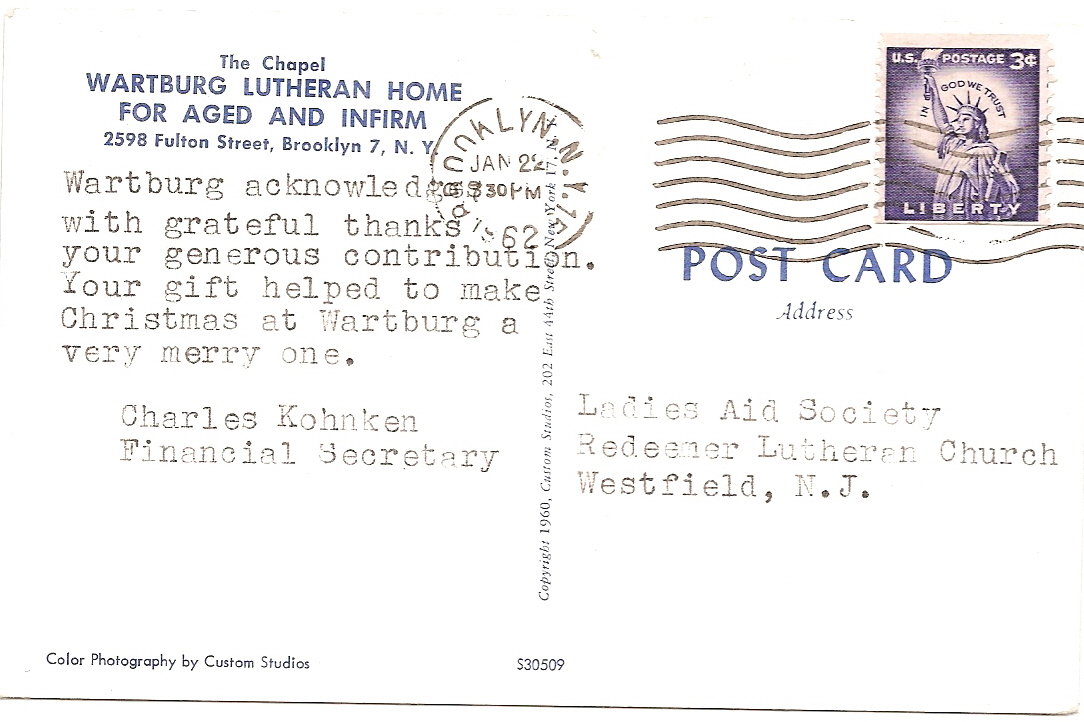 The Chapel
WARTBURG LUTHERAN HOME
FOR AGED AND INFIRM
2598 Fulton Street, Brooklyn 7, N. Y.
Wartburg acknowledges
with grateful thanks
your generous contribution.
Your gift helped to make
Christmas at Wartburg a
very merry one.
Charles Kohnken
Financial Secretary
Color Photography by Custom Studios
S30509
Copyright 1960, Custom Studios, 202 East 44th Street, New York 17, N.Y.
BROOKLYN, N.Y.
JAN 22
30 PM
62
U.S. POSTAGE 3¢
IN GOD WE TRUST
LIBERTY
POST CARD
Address
Ladies Aid Society
Redeemer Lutheran Church
Westfield, N.J.